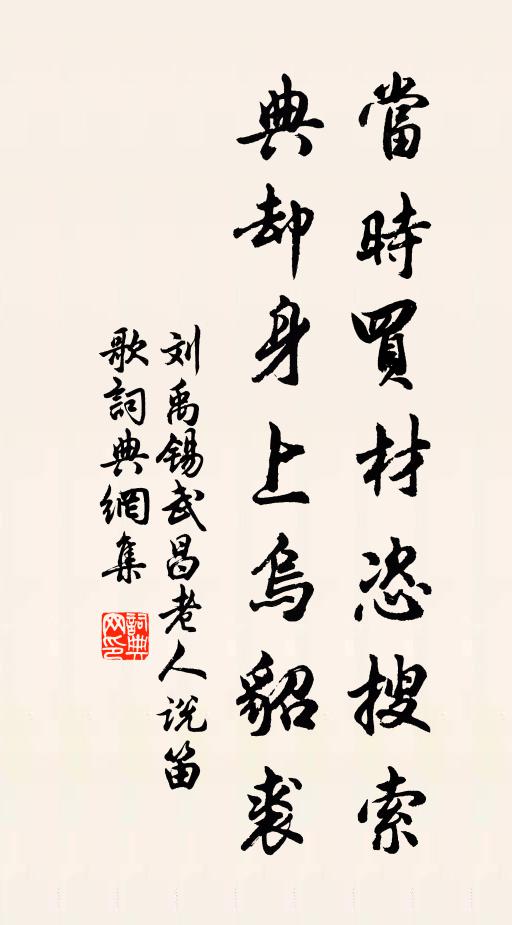 當時買材恣搜索
典却身上烏貂裘
刘禹锡武昌老人说笛
歌詞典網集
詞典网印